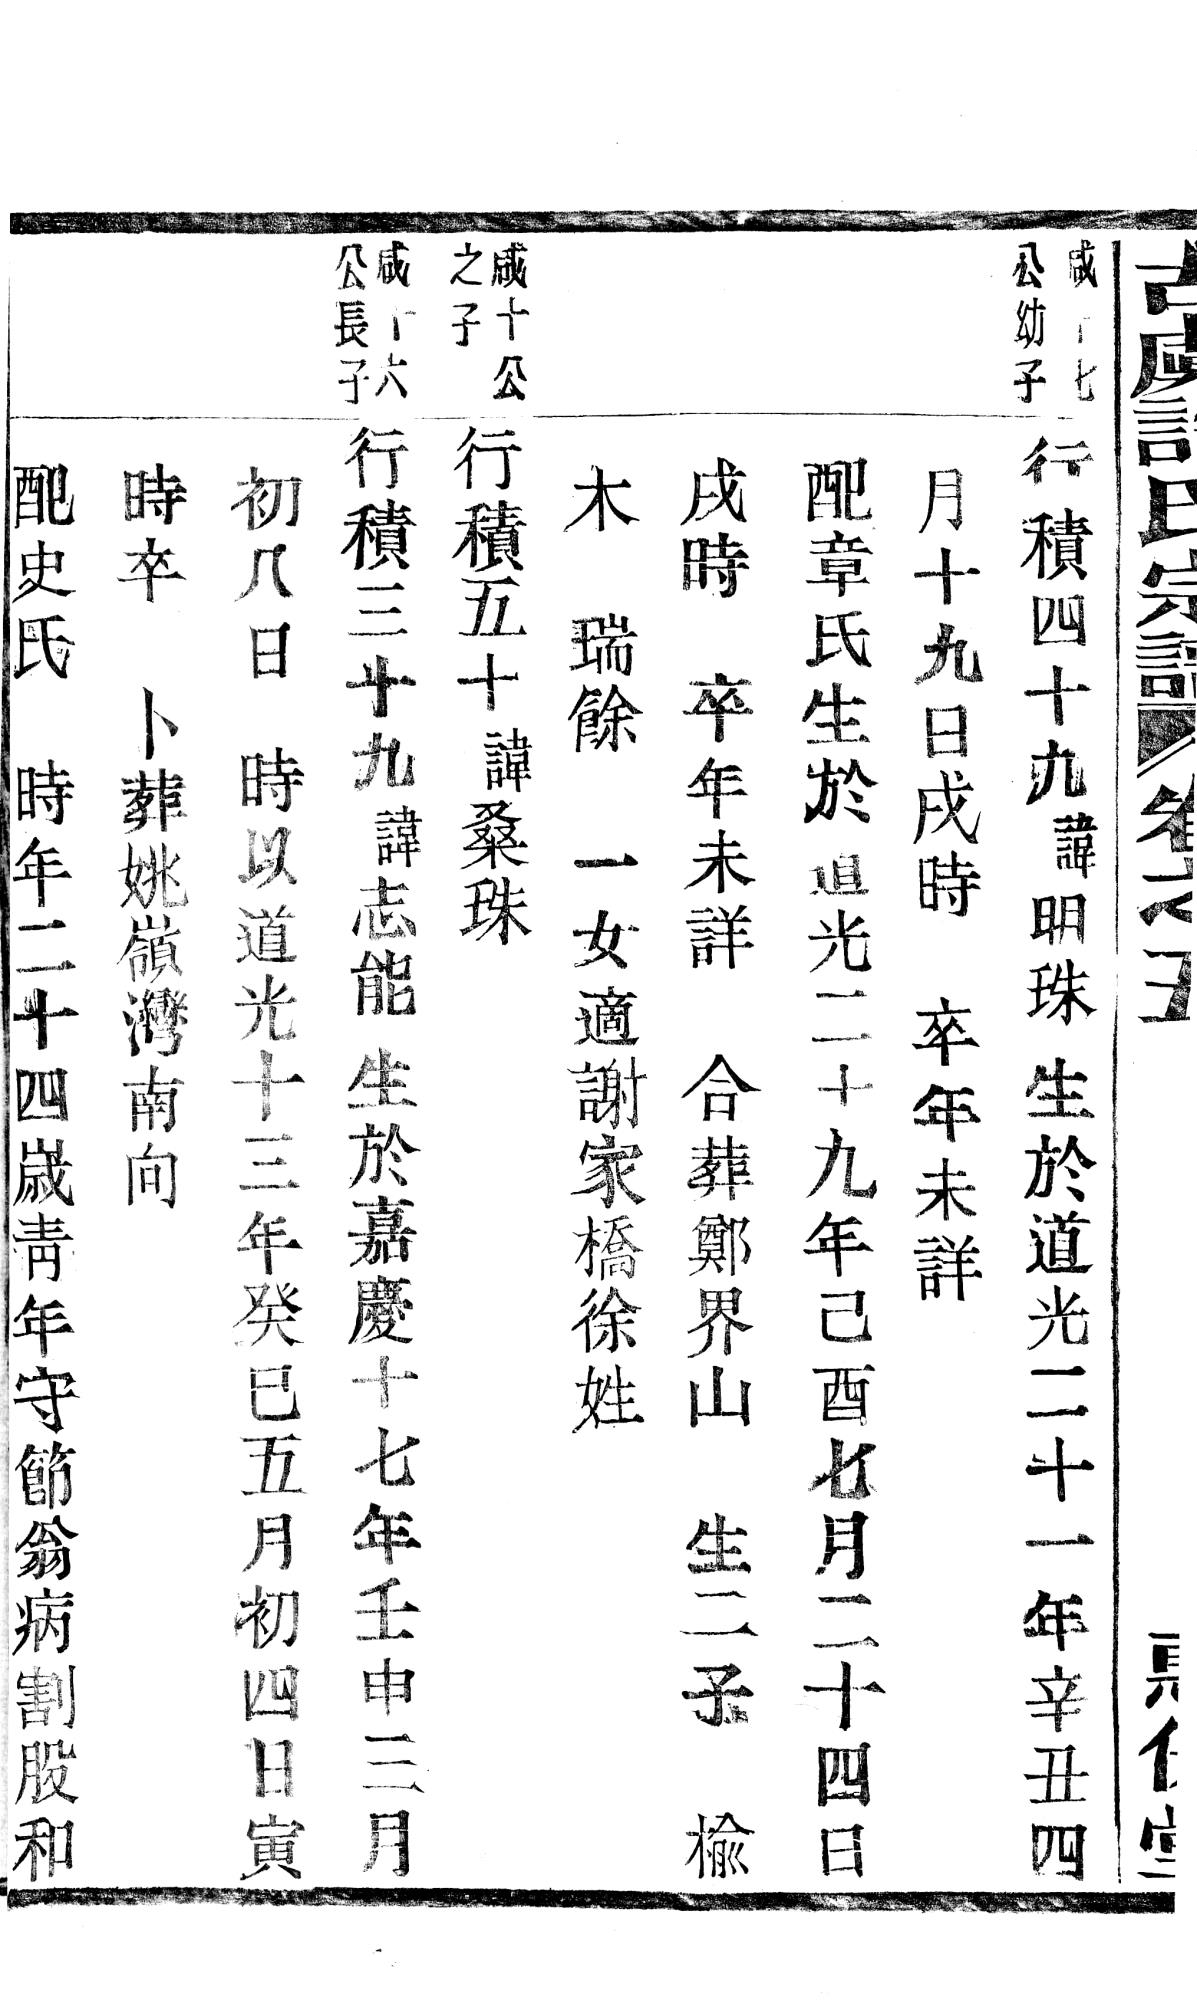 古虞許氏宗譜 卷之五
咸十七
公幼子
行積四十九諱明珠 生於道光二十一年辛丑四
月十九日戌時 卒年未詳
配章氏生於道光二十九年己酉七月二十四日
戌時 卒年未詳 合葬鄭界山 生二子 楡
木 瑞餘 一女適謝家橋徐姓
咸十公
之子
行積五十諱桑珠
咸十六
公長子
行積三十九諱志能 生於嘉慶十七年壬申三月
初八日 時以道光十三年癸巳五月初四日寅
時卒 卜葬姚嶺灣南向
配史氏 時年二十四歲靑年守節翁病割股和